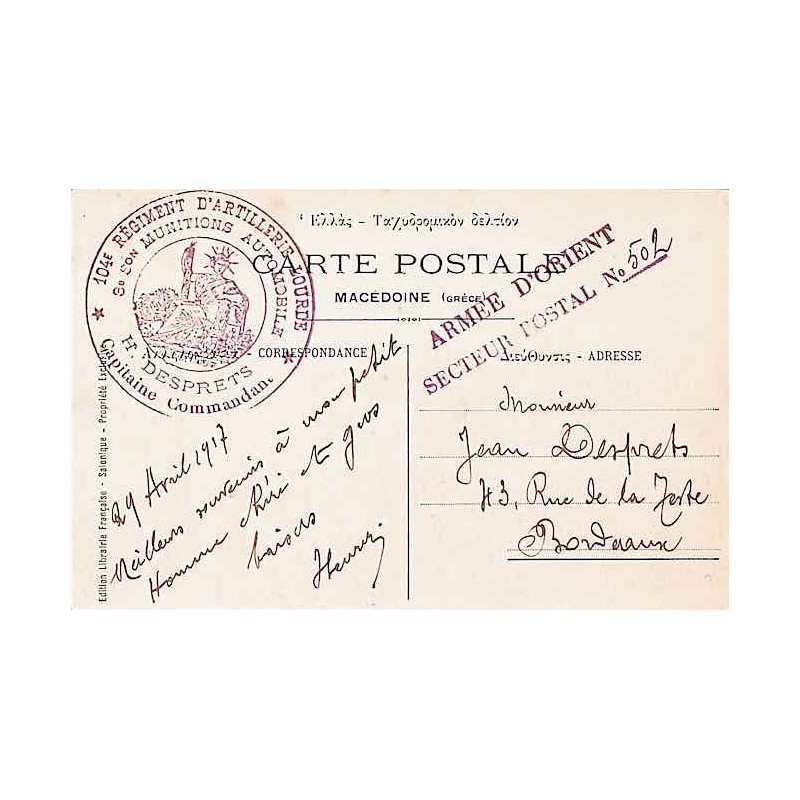 104E RÉGIMENT D'ARTILLERIE LOURDE
8e Son MUNITIONS AUTOMOBILE
H. DESPRETS
Capitaine Commandant
Ἑλλὰς - Ταχυδρομικὸν δελτίον
CARTE POSTALE
MACÉDOINE (GRÈCE)
ARMÉE D'ORIENT
SECTEUR POSTAL No 502
- CORRESPONDANCE
Διεύθυντις - ADRESSE
29 Avril 1917
Meilleurs souvenirs à mon petit
Homme chéri et gros
baisers
Henri
Monsieur
Jean Desprets
43, Rue de la Teste
Bordeaux
Edition Librairie Française - Salonique - Propriété Exclusive